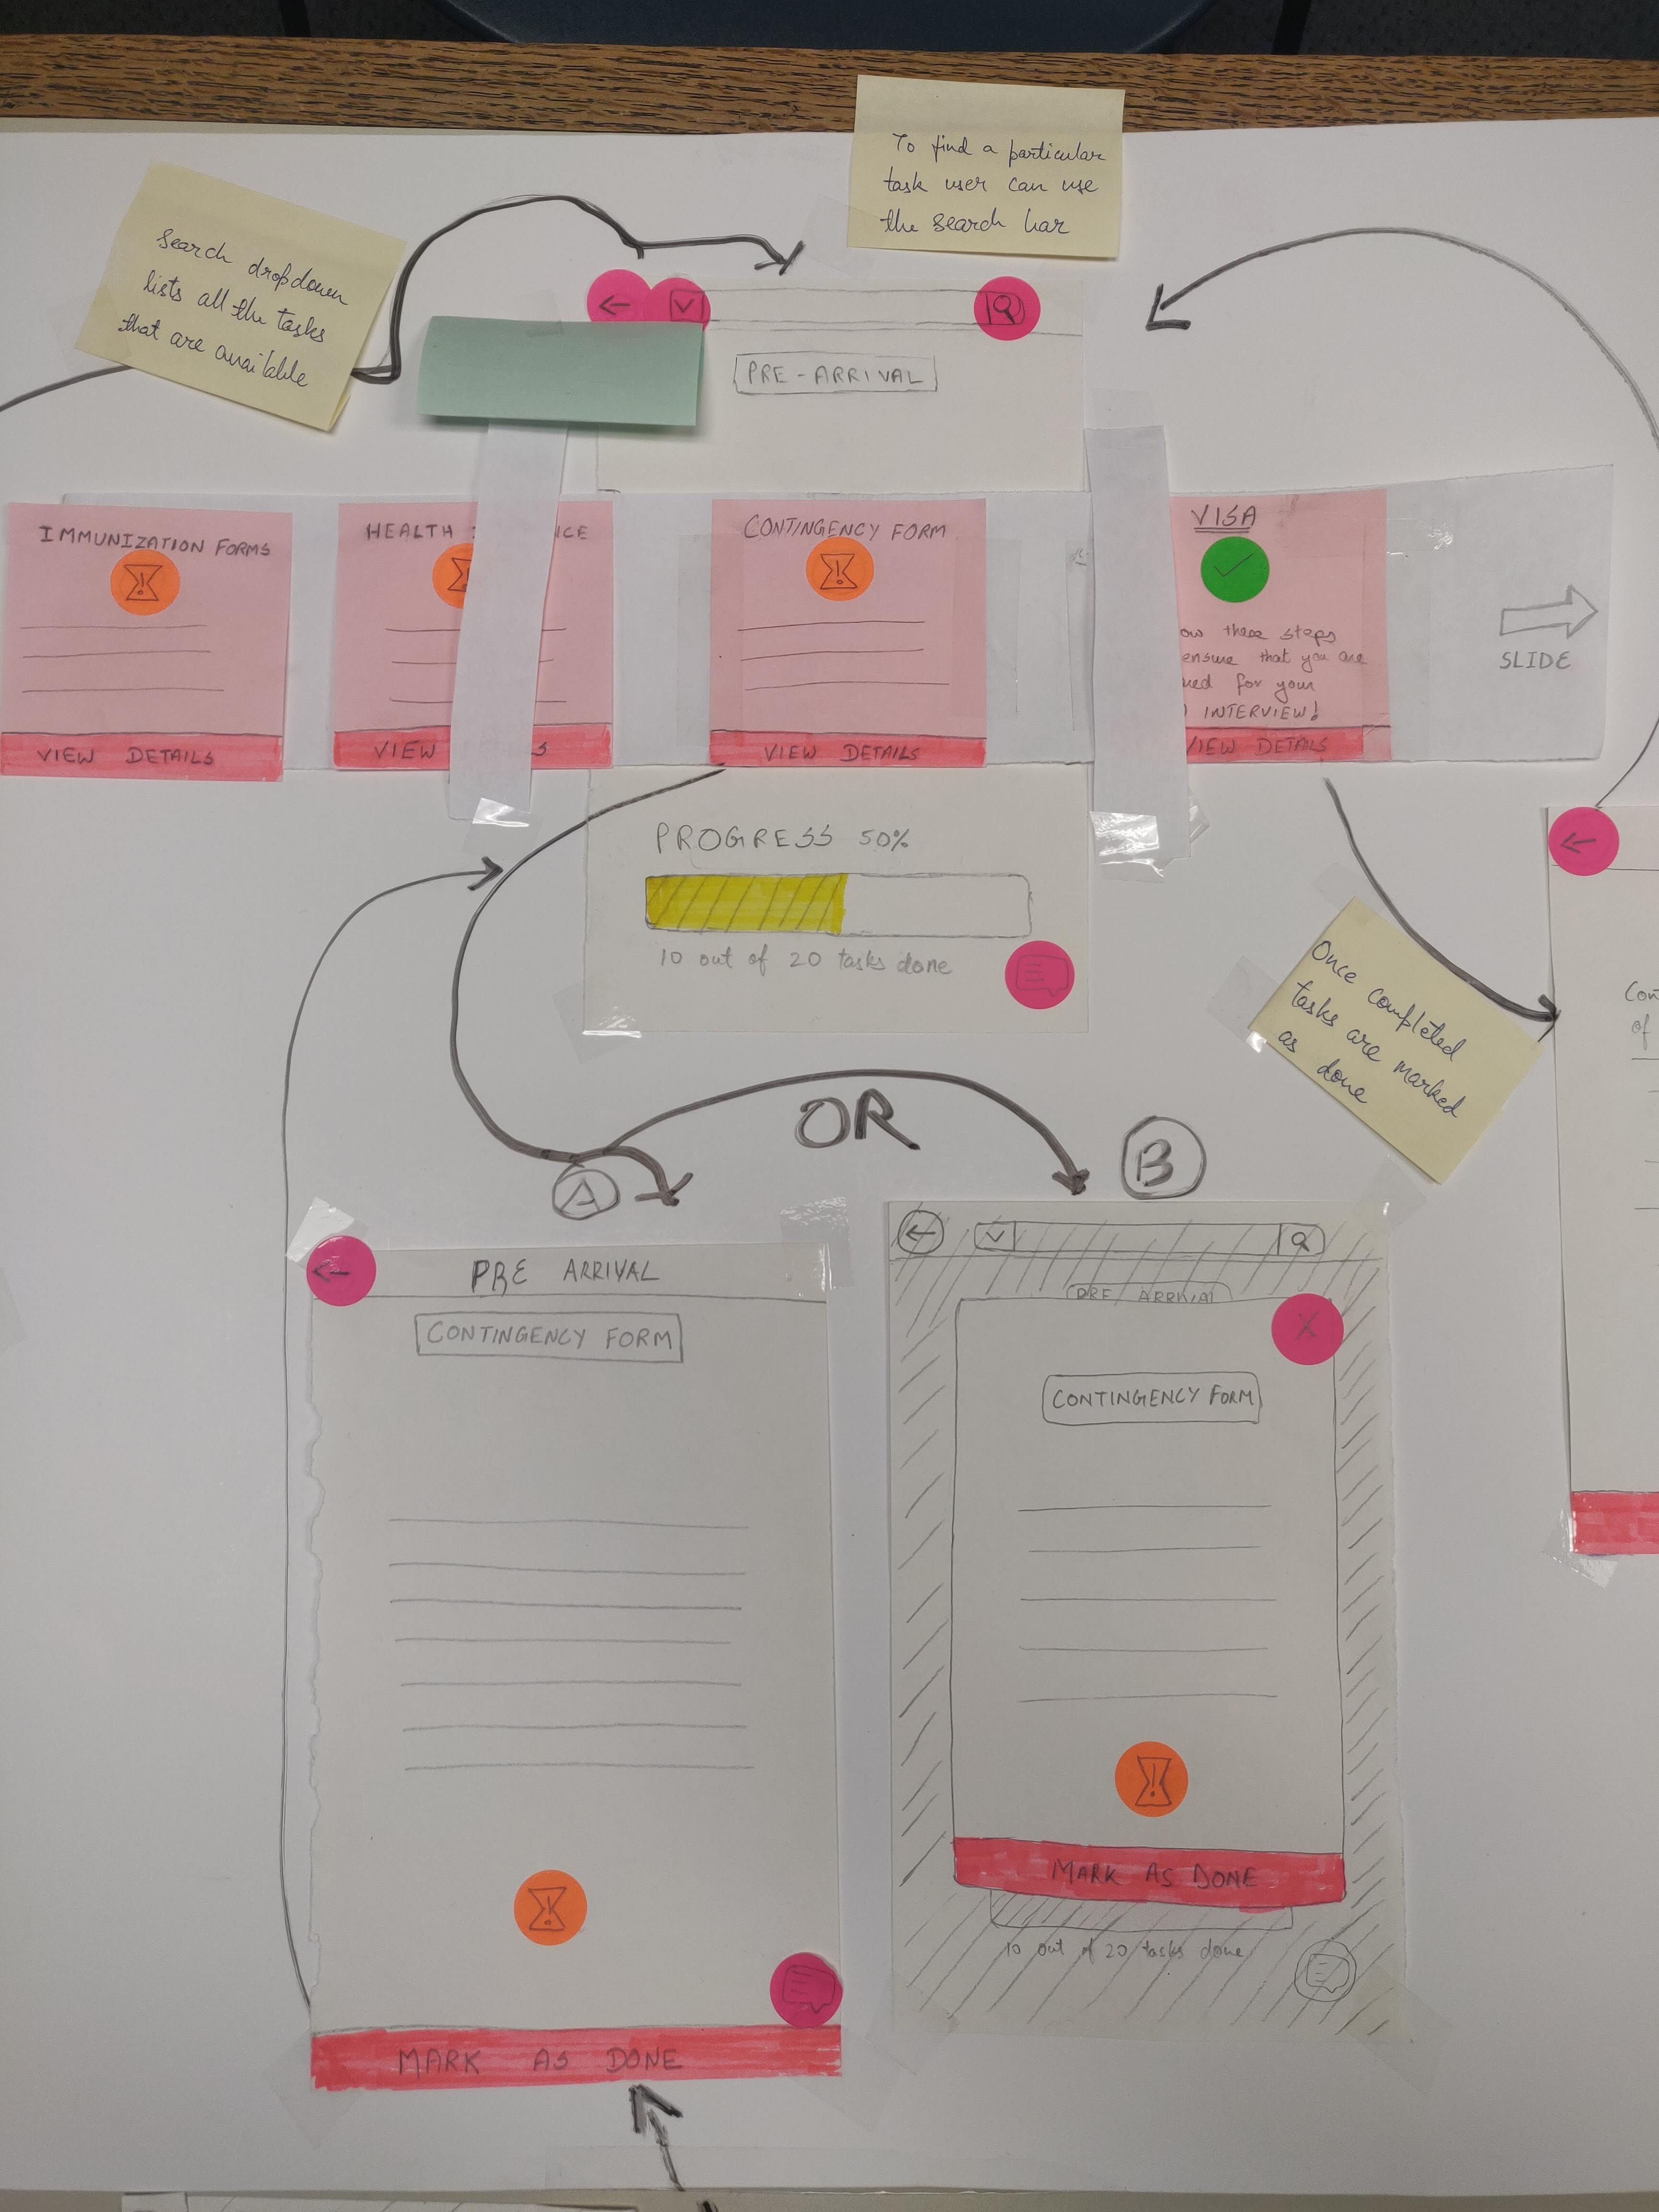 To find a particular
task user can use
the search bar
Search dropdown
lists all the tasks
that are available
PRE - ARRIVAL
IMMUNIZATION FORMS
VIEW DETAILS
HEALTH
NCE
VIEW
S
CONTINGENCY FORM
VIEW DETAILS
VISA
ow these steps
ensure that you are
red for your
INTERVIEW!
VIEW DETAILS
SLIDE
PROGRESS 50%
10 out of 20 tasks done
Once completed
tasks are marked
as done
Con
of
OR
A
B
PRE ARRIVAL
CONTINGENCY FORM
MARK AS DONE
PRE ARRIVAL
X
CONTINGENCY FORM
MARK AS DONE
10 out of 20 tasks done